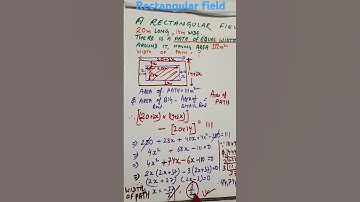 Rectangular field
A RECTANGULAR FIELD
20m LONG, 14m WIDE.
THERE IS A PATH OF EQUAL WIDTH
AROUND IT, HAVING AREA 111m²
WIDTH OF PATH = ?
20+2x
14+2x
AREA OF PATH = 111m²
AREA OF BIG - AREA OF = AREA OF
PATH
[(20+2x) × (14+2x)]
- [20×14] = 111
⇒ 280 + 28x + 40x + 4x² - 280 = 111
⇒ 4x² + 68x - 111 = 0
⇒ 4x² + 74x - 6x - 111 = 0
⇒ 2x (2x+37) - 3 (2x+37) = 0
(2x+37) (2x-3) = 0
WIDTH OF
PATH